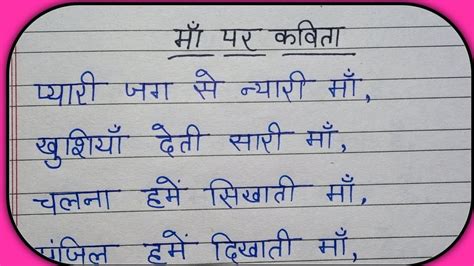 माँ पर कविता
प्यारी जग से न्यारी माँ,
खुशियाँ देती सारी माँ,
चलना हमें सिखाती माँ,
मंजिल हमें दिखाती माँ,